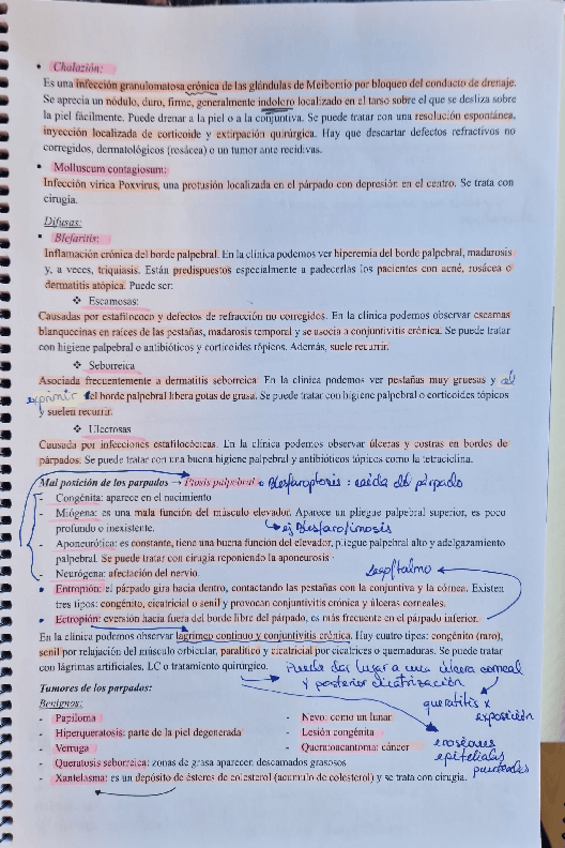 • Chalazión:
Es una infección granulomatosa crónica de las glándulas de Meibomio por bloqueo del conducto de drenaje.
Se aprecia un nódulo, duro, firme, generalmente indoloro localizado en el tarso sobre el que se desliza sobre
la piel fácilmente. Puede drenar a la piel o a la conjuntiva. Se puede tratar con una resolución espontánea,
inyección localizada de corticoide y extirpación quirúrgica. Hay que descartar defectos refractivos no
corregidos, dermatológicos (rosácea) o un tumor ante recidivas.
• Molluscum contagiosum:
Infección vírica Poxvirus, una protusión localizada en el párpado con depresión en el centro. Se trata con
cirugía.
Difusas:
▪ Blefaritis:
Inflamación crónica del borde palpebral. En la clínica podemos ver hiperemia del borde palpebral, madarosis
y, a veces, triquiasis. Están predispuestos especialmente a padecerlas los pacientes con acné, rosácea o
dermatitis atópica. Puede ser:
❖ Escamosas:
Causadas por estafilococo y defectos de refracción no corregidos. En la clínica podemos observar escamas
blanquecinas en raíces de las pestañas, madarosis temporal y se asocia a conjuntivitis crónica. Se puede tratar
con higiene palpebral o antibióticos y corticoides tópicos. Además, suele recurrir.
❖ Seborreica
Asociada frecuentemente a dermatitis seborreica. En la clínica podemos ver pestañas muy gruesas y al
exprimir el borde palpebral libera gotas de grasa. Se puede tratar con higiene palpebral o corticoides tópicos
y suelen recurrir.
❖ Ulcerosas
Causada por infecciones estafilocócicas. En la clínica podemos observar úlceras y costras en bordes de
párpados. Se puede tratar con una buena higiene palpebral y antibióticos tópicos como la tetraciclina.
Mal posición de los parpados → Ptosis palpebral o Blefaroptosis: caída del párpado
- Congénita: aparece en el nacimiento
- Miógena: es una mala función del músculo elevador. Aparece un pliegue palpebral superior, es poco
profundo o inexistente. ej Blefarofimosis
- Aponeurótica: es constante, tiene una buena función del elevador, pliegue palpebral alto y adelgazamiento
palpebral. Se puede tratar con cirugía reponiendo la aponeurosis
- Neurógena: afectación del nervio. Lagoftalmo
• Entropión: el párpado gira hacia dentro, contactando las pestañas con la conjuntiva y la córnea. Existen
tres tipos: congénito, cicatricial o senil y provocan conjuntivitis crónica y úlceras corneales.
• Ectropión: eversión hacia fuera del borde libre del párpado, es más frecuente en el párpado inferior.
En la clínica podemos observar lagrimeo continuo y conjuntivitis crónica. Hay cuatro tipos: congénito (raro),
senil por relajación del músculo orbicular, paralítico y cicatricial por cicatrices o quemaduras. Se puede tratar
con lágrimas artificiales, LC o tratamiento quirúrgico. Puede dar lugar a una úlcera corneal
y posterior cicatrización
queratitis x
exposición
erosiones
epiteliales
punteadas
Tumores de los parpados:
Benignos:
- Papiloma
- Hiperqueratosis: parte de la piel degenerada
- Verruga
- Nevo: como un lunar
- Lesión congénita
- Queratoacantoma: cáncer
- Queratosis seborreica: zonas de grasa aparecen descamados grasosos
- Xantelasma: es un depósito de ésteres de colesterol (acumulo de colesterol) y se trata con cirugía.